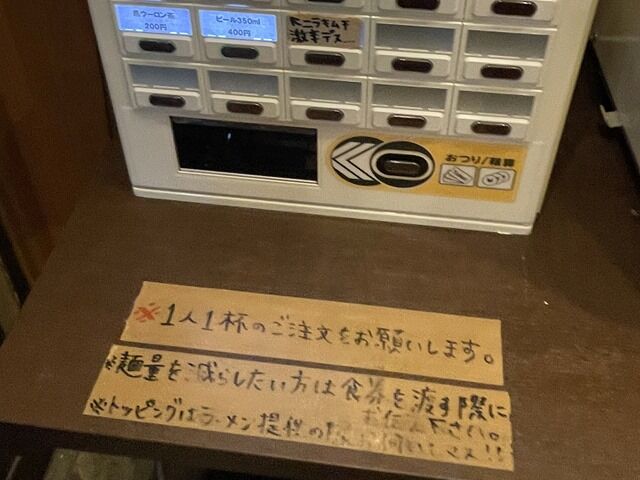 黒ウーロン茶
200円
ビール350ml
400円
ニラキムチ
激辛デス
おつり/精算
※1人1杯のご注文をお願いします。
※麺量を減らしたい方は食券を渡す際に
お伝え下さい。
※トッピングはラーメン提供の際お伺いしてマス!!